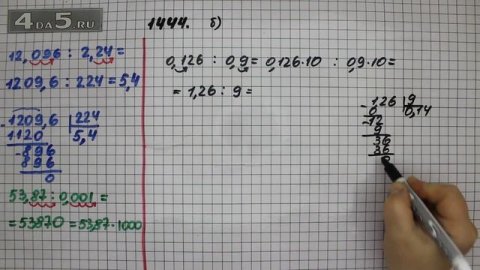 4DA5.RU
1444. б)
12,096 : 2,24 =
1209,6 : 224 = 5,4
- 1209,6 | 224
1120 | 5,4
- 896
896
0
53,87 : 0,001 =
= 53870 = 53,87 · 1000
0,126 : 0,9 = 0,126·10 : 0,9·10 =
= 1,26 : 9 =
- 1,26 | 9
0 | 0,14
- 12
9
36
36
0